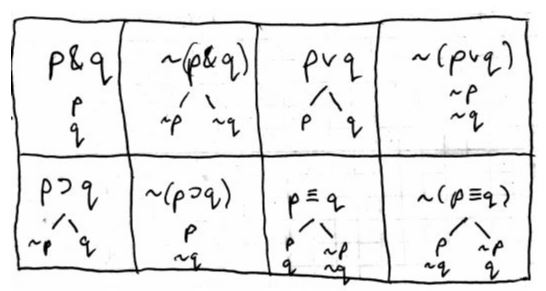 p&q
p
q
~(p&q)
~p ~q
p∨q
p q
~(p∨q)
~p
~q
p⊃q
~p q
~(p⊃q)
p
~q
p≡q
p ~p
q ~q
~(p≡q)
p ~p
~q q